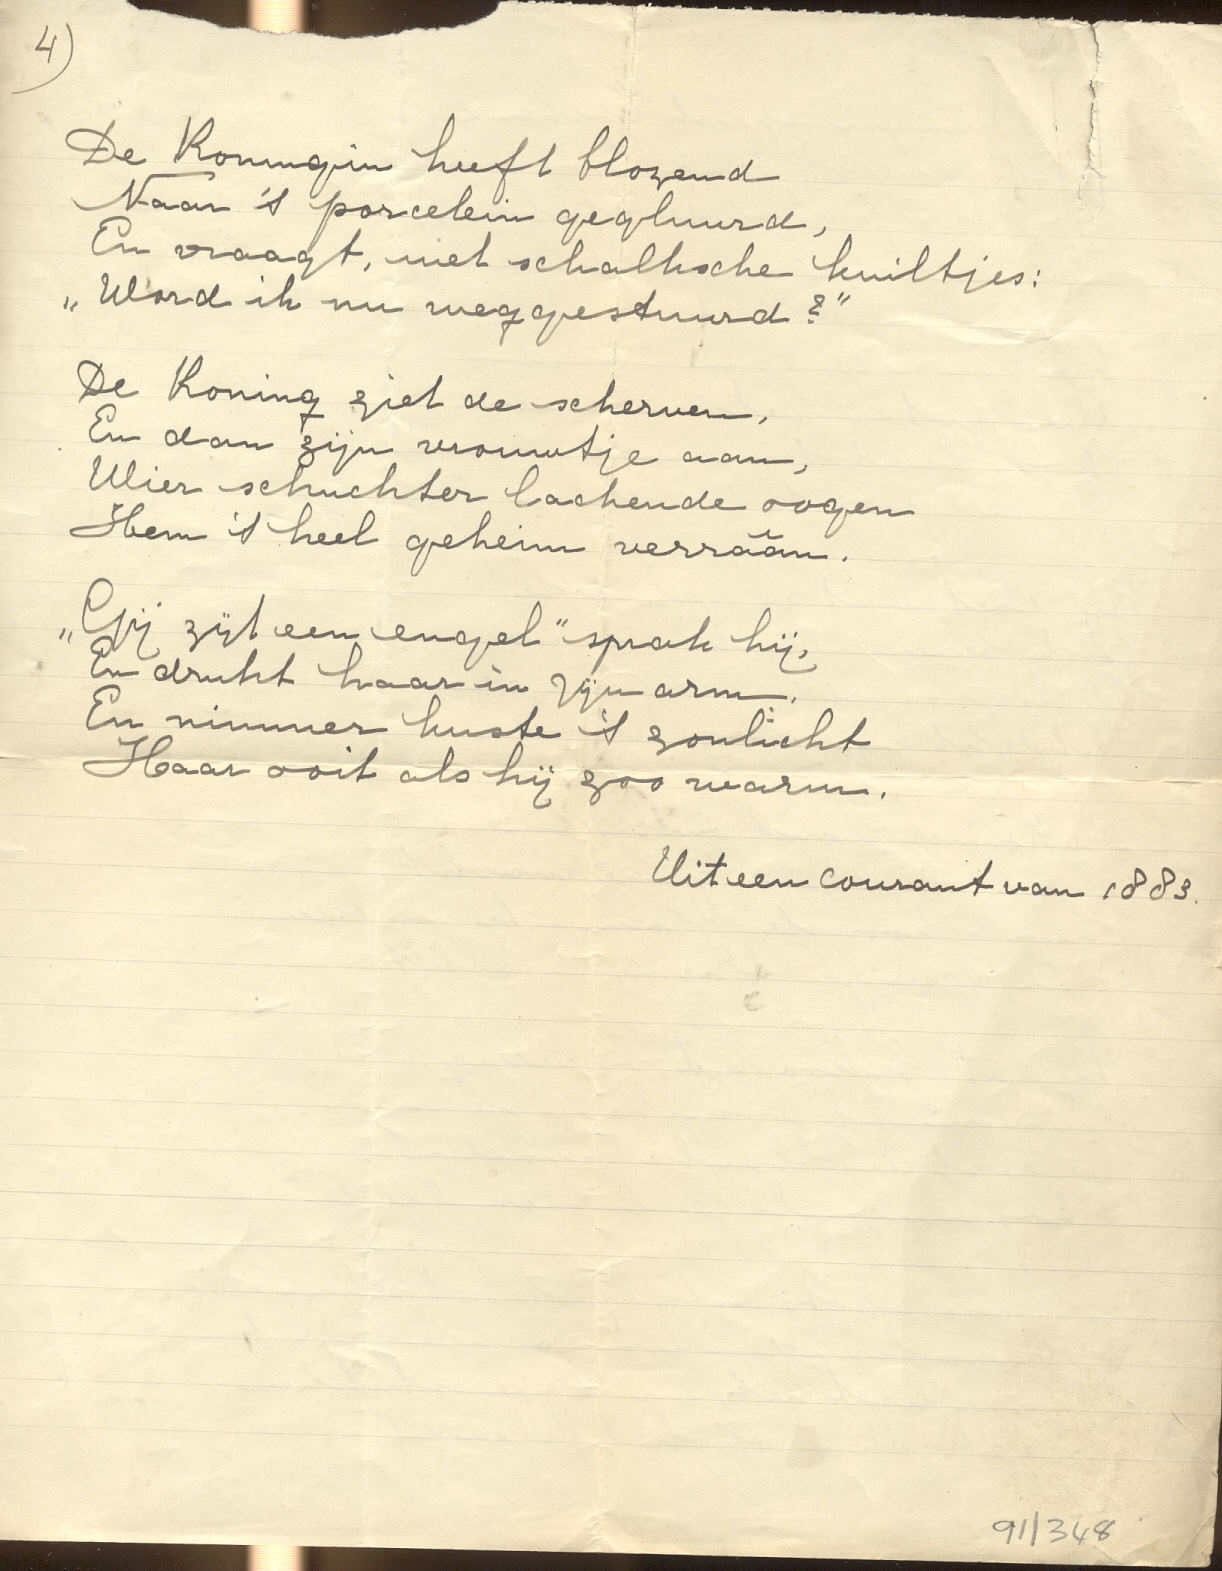 4)
De Koningin heeft blozend
Naar 't porcelein gegluurd,
En vraagt, met schalksche kuiltjes:
„Word ik nu weggestuurd?"
De Koning ziet de scherven,
En dan zijn vrouwtje aan,
Wier schuchter lachende oogen
Hem 't heel geheim verraân.
„Gij zijt een engel" sprak hij,
En drukt haar in zijn arm.
En nimmer kuste 't zonlicht
Haar ooit als hij zoo warm.
Uit een courant van 1883.
91/348